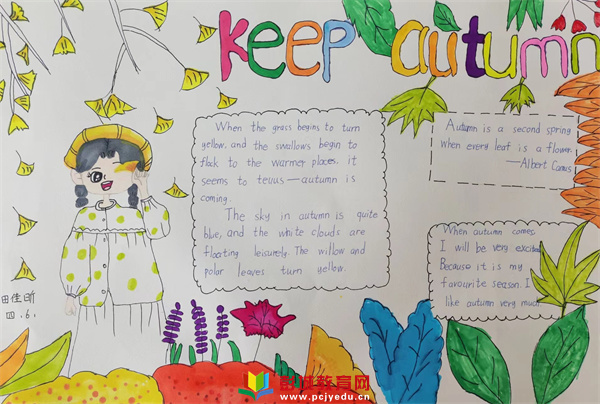 Keep autumn
When the grass begins to turn
yellow, and the swallows begin to
flock to the warmer places. It
seems to teuus—autumn is
coming.
The sky in autumn is quite
blue, and the white clouds are
floating leisurely. The willow and
polar leaves turn yellow.
Autumn is a second spring
when every leaf is a flower.
—Albert Camus
When autumn comes,
I will be very excited
Because it is my
favourite season. I
like autumn very much
田佳昕
四.6.
融诚教育网
www.pcjyedu.cn